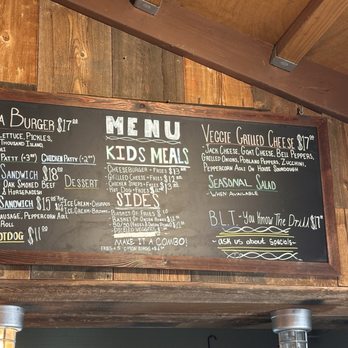 A BURGER $17.00
LETTUCE, PICKLES,
THOUSAND ISLAND,
PATTY (-3.00) CHICKEN PATTY (-2.00)
SANDWICH $18.00
OAK SMOKED BEEF
& HORSERADISH
SANDWICH $15.
SAUSAGE, PEPPERCORN AIOLI
ROLL
HOTDOG $11.00
DESSERT
ICE CREAM
ICE CREAM
MENU
KIDS MEALS
CHEESEBURGER + FRIES
GRILLED CHEESE + FRIES
CHICKEN STRIPS + FRIES
HOT DOG + FRIES
SIDES
BASKET OF FRIES
BASKET OF ONION RINGS
MAKE IT A COMBO!
VEGGIE GRILLED CHEESE $17.00
JACK CHEESE, GOAT CHEESE, BELL PEPPERS,
GRILLED ONIONS, POBLANO PEPPERS, ZUCCHINI,
PEPPERCORN AIOLI ON HOUSE SOURDOUGH
SEASONAL SALAD
WHEN AVAILABLE
BLT - YOU KNOW THE DRILL $17
- ASK US ABOUT SPECIALS -